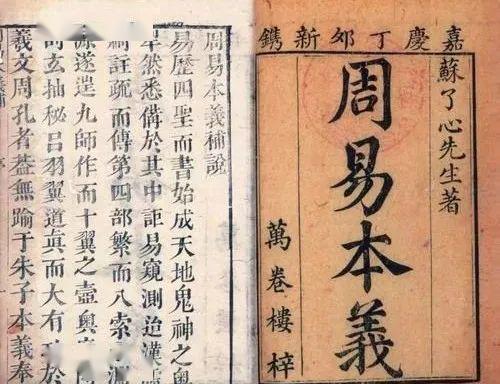 嘉慶丁卯新鐫
蘇了心先生著
周易本義
萬卷樓梓
周易本義補說
易歷四聖而書始成天地鬼神之奧
卓然悉備於其中詎易窺測迨漢
註疏而傳第四部繁而八索
遂遑九師作而十翼之壼奧
玄抽秘吕羽翼道真而大有功於
羲文周孔者葢無踰于朱子本義奉